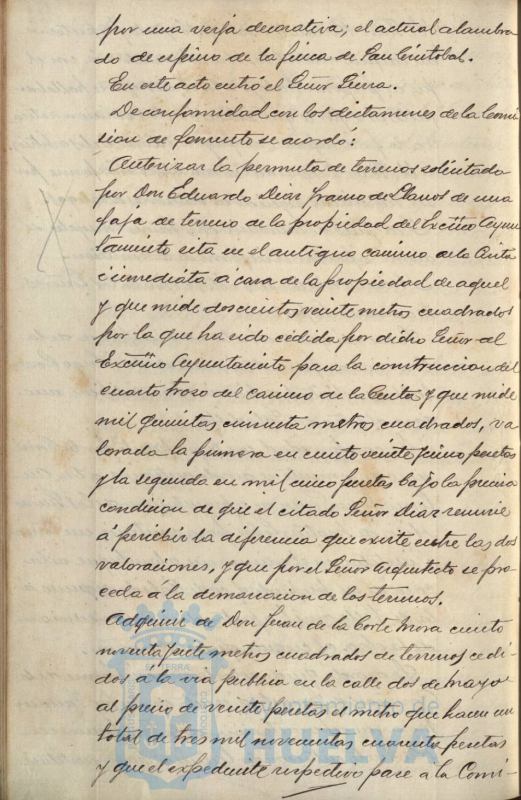 por una verja decorativa; el actual alambra
do de espino de la finca de San Cristobal.
En este acto entró el Señor Sierra.
De conformidad con los dictamenes de la Comi
sion de fomento se acordó:
Autorizar la permuta de terrenos solicitada
por Don Eduardo Diaz franco de Llanos de una
faja de terreno de la propiedad del Excmo Ayun
tamiento sita en el antiguo camino de la Cinta
é inmediata á casa de la propiedad de aquel
y que mide doscientos veinte metros cuadrados
por la que ha sido cedida por dicho Señor al
Excmo Ayuntamiento para la construccion del
cuarto trozo del camino de la Cinta y que mide
mil quinientos cincuenta metros cuadrados, va
lorada la primera en ciento veinte y cinco pesetas
y la segunda en mil cinco pesetas bajo la precisa
condicion de que el citado Señor Diaz renuncie
á percibir la diferencia que existe entre las dos
valoraciones, y que por el Señor Arquitecto se pro
ceda á la demarcacion de los terrenos.
Adquirir de Don Juan de la Corte Mora ciento
noventa y siete metros cuadrados de terrenos cedi-
dos á la via publica en la calle dos de Mayo
al precio de veinte pesetas el metro que hacen un
total de tres mil novecientas cuarenta pesetas
y que el expediente respectivo pase á la Comi-
Ayuntamiento de
HUELVA